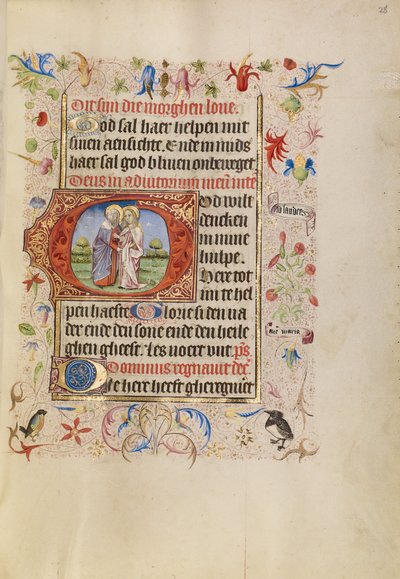 28
Dit sijn die morghen loue.
God sal haer helpen mit
sinen aensichte. Ende in midds
haer sal god bliuen onbeweget
Deus in adiutorium meū inte
God wilt
dencken
in mine
hulpe.
Here tot
mi te hel
pen haeste. Glorie si den va
der ende den sone ende den heile
ghen gheest. Les voert vut ps
Dominus regnauit dec
Die here heeft gheregniert
aue maria